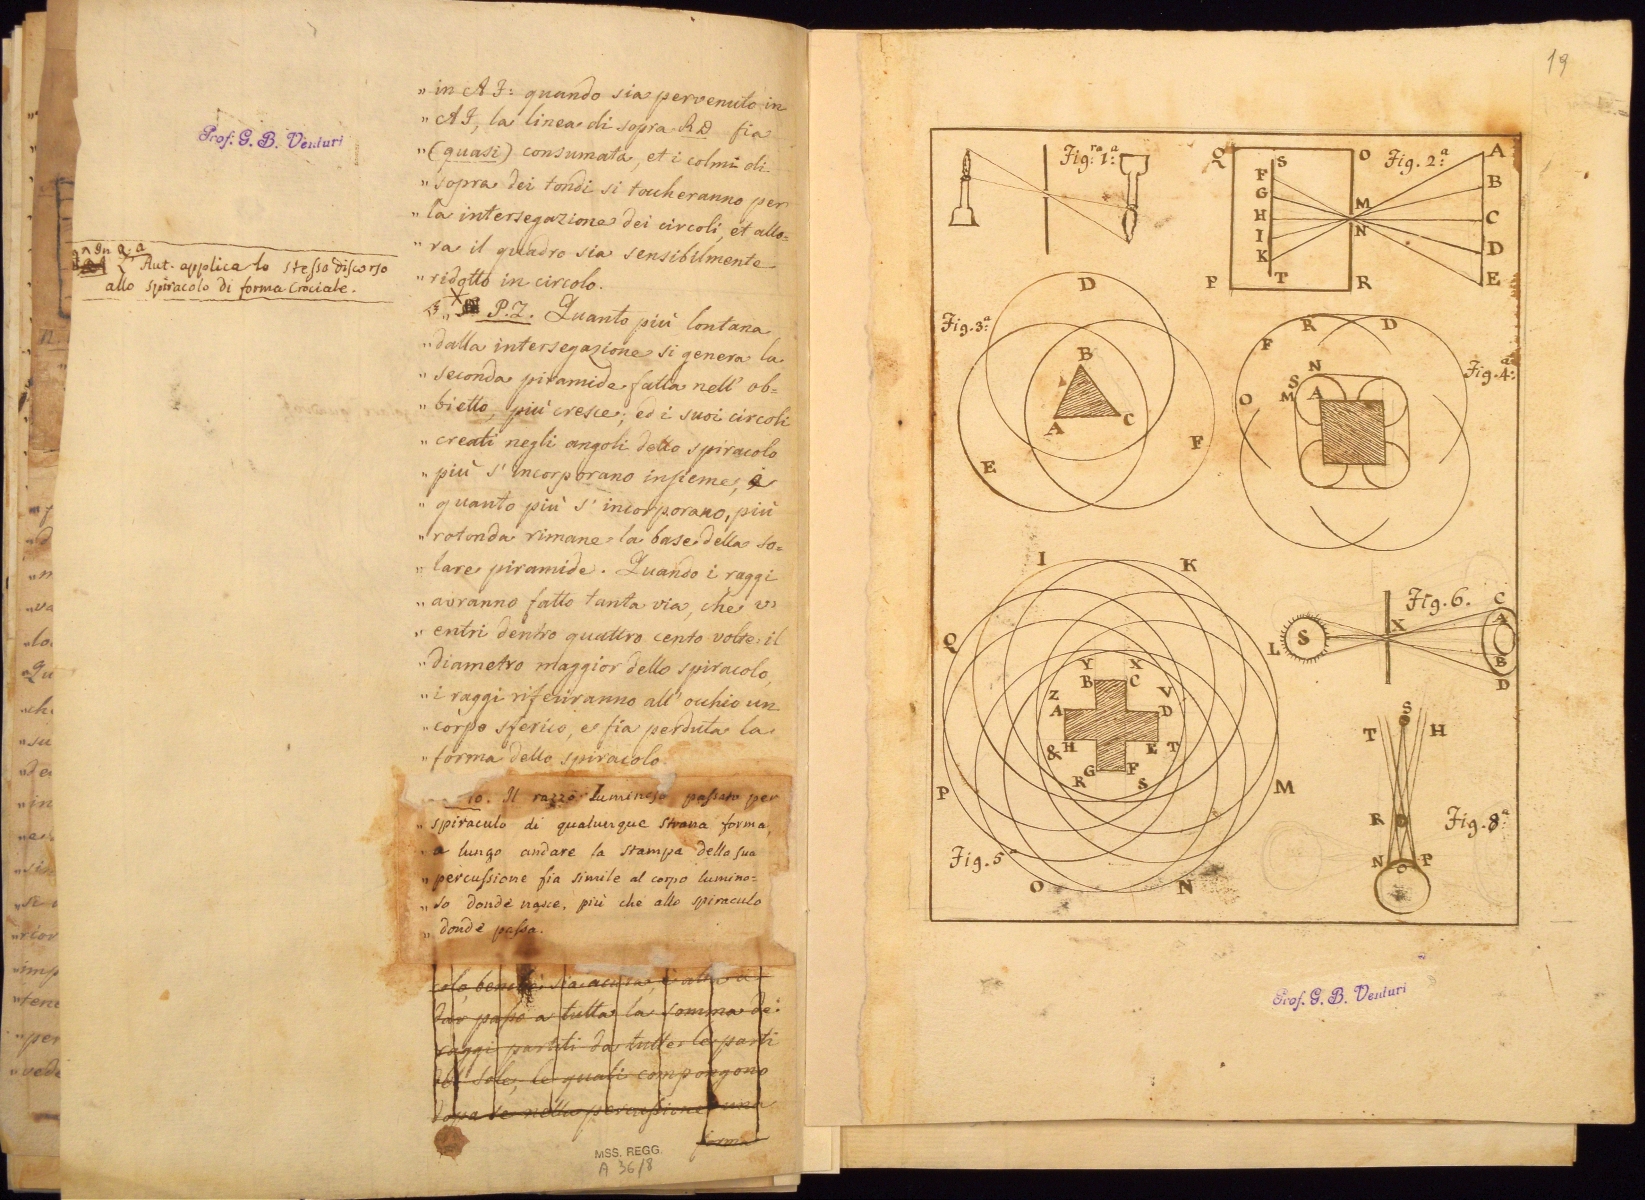 Prof. G. B. Venturi
L' Aut. applica lo stesso discorso
allo spiracolo di forma crociale.
„ in A F: quando sia pervenuto in
„ A F, la linea di sopra R D fia
„ (quasi) consumata, et i colmi di
„ sopra dei tondi si toccheranno per
„ la intersegazione dei circoli, et allo=
„ ra il quadro sia sensibilmente
„ ridotto in circolo.
P.Z. Quanto più lontana
„ dalla intersegazione si genera la
„ seconda piramide fatta nell' ob=
„ bietto, più cresce; ed i suoi circoli
„ creati negli angoli dello spiracolo
„ più s' incorporano insieme, e
„ quanto più s' incorporano, più
„ rotonda rimane la base della so=
„ lare piramide. Quando i raggi
„ avranno fatto tanta via, che v'
„ entri dentro quattro cento volte il
„ diametro maggior dello spiracolo,
„ i raggi riferiranno all' occhio un
„ corpo sferico, e fia perduta la
„ forma dello spiracolo.
10. Il razzo luminoso passato per
„ spiraculo di qualunque strana forma,
„ a lungo andare la stampa della sua
„ percussione fia simile al corpo lumino=
„ so donde nasce, più che allo spiraculo
„ donde passa.
colo, benchè sia acuta, è atta a
dar passo a tutta la somma de'
raggi partiti da tutte le parti
del Sole, le quali compongono
dopo se nella percussione una
forma
MSS. REGG.
A 36/8
19
Fig.ra 1.a
Q S O Fig. 2.a A
F B
G M
H C
I N D
K
P T R E
Fig. 3.a D
B
A C
E F
R D
F Fig. 4.a
N
S
O M A
I K
Q L
Y X
B C
Z V
A D
& H E T
G F
R S
P M
Fig. 5.a
O N
Fig. 6. C
S X A
B
D
S
T H
R D Fig. 8.a
N O P
Prof. G. B. Venturi